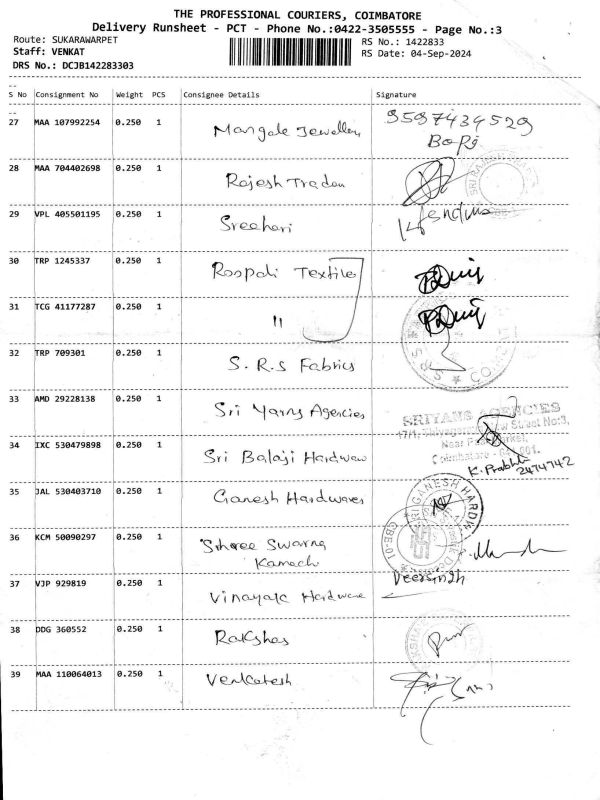 THE PROFESSIONAL COURIERS, COIMBATORE
Delivery Runsheet - PCT - Phone No.:0422-3505555 - Page No.:3
Route: SUKARAWARPET RS No.: 1422833
Staff: VENKAT RS Date: 04-Sep-2024
DRS No.: DCJB142283303
S No Consignment No Weight PCS Consignee Details Signature
27 MAA 107992254 0.250 1 Mangale Jewellery 9597434529
28 MAA 704402698 0.250 1 Rajesh Tradon
29 VPL 405501195 0.250 1 Sreehari
30 TRP 1245337 0.250 1 Roopali Textile
31 TCG 41177287 0.250 1 "
32 TRP 709301 0.250 1 S.R.S Fabrics
33 AMD 29228138 0.250 1 Sri Yarns Agencies
SRIYANS AGENCIES
34 IXC 530479898 0.250 1 Sri Balaji Hardware K. Prabhu 2474742
35 JAL 530403710 0.250 1 Ganesh Hardwares
SRI GANESH HARDW
36 KCM 50090297 0.250 1 Shree Swarna
Kamachi
37 VJP 929819 0.250 1 Vinayaga Hardware Veersingh
38 DDG 360552 0.250 1 Rakshas
39 MAA 110064013 0.250 1 Venkatesh